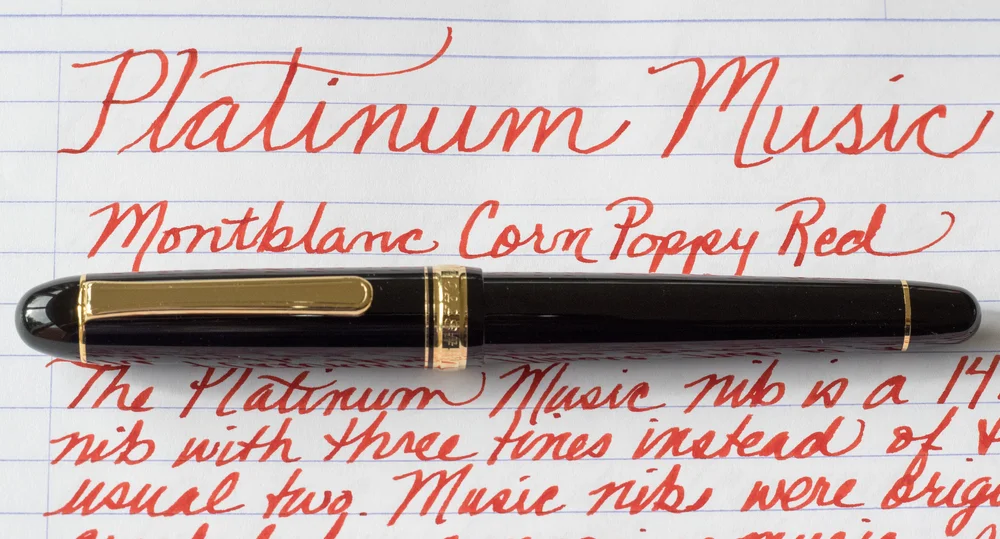 Platinum Music
Montblanc Corn Poppy Red
The Platinum Music nib is a 14
nib with three tines instead of
usual two. Music nibs were